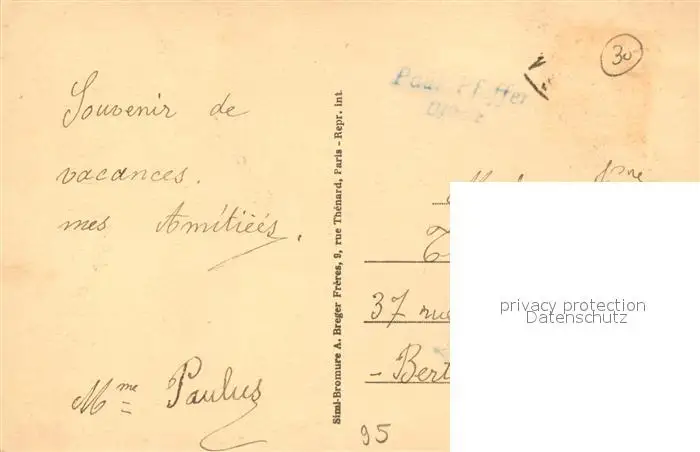 Souvenir de
vacances.
mes Amitiéés.
Mme Paulus
Simi-Bromure A. Breger Frères, 9, rue Thénard, Paris - Repr. int.
30
37 rue
- Bert
95
privacy protection
Datenschutz